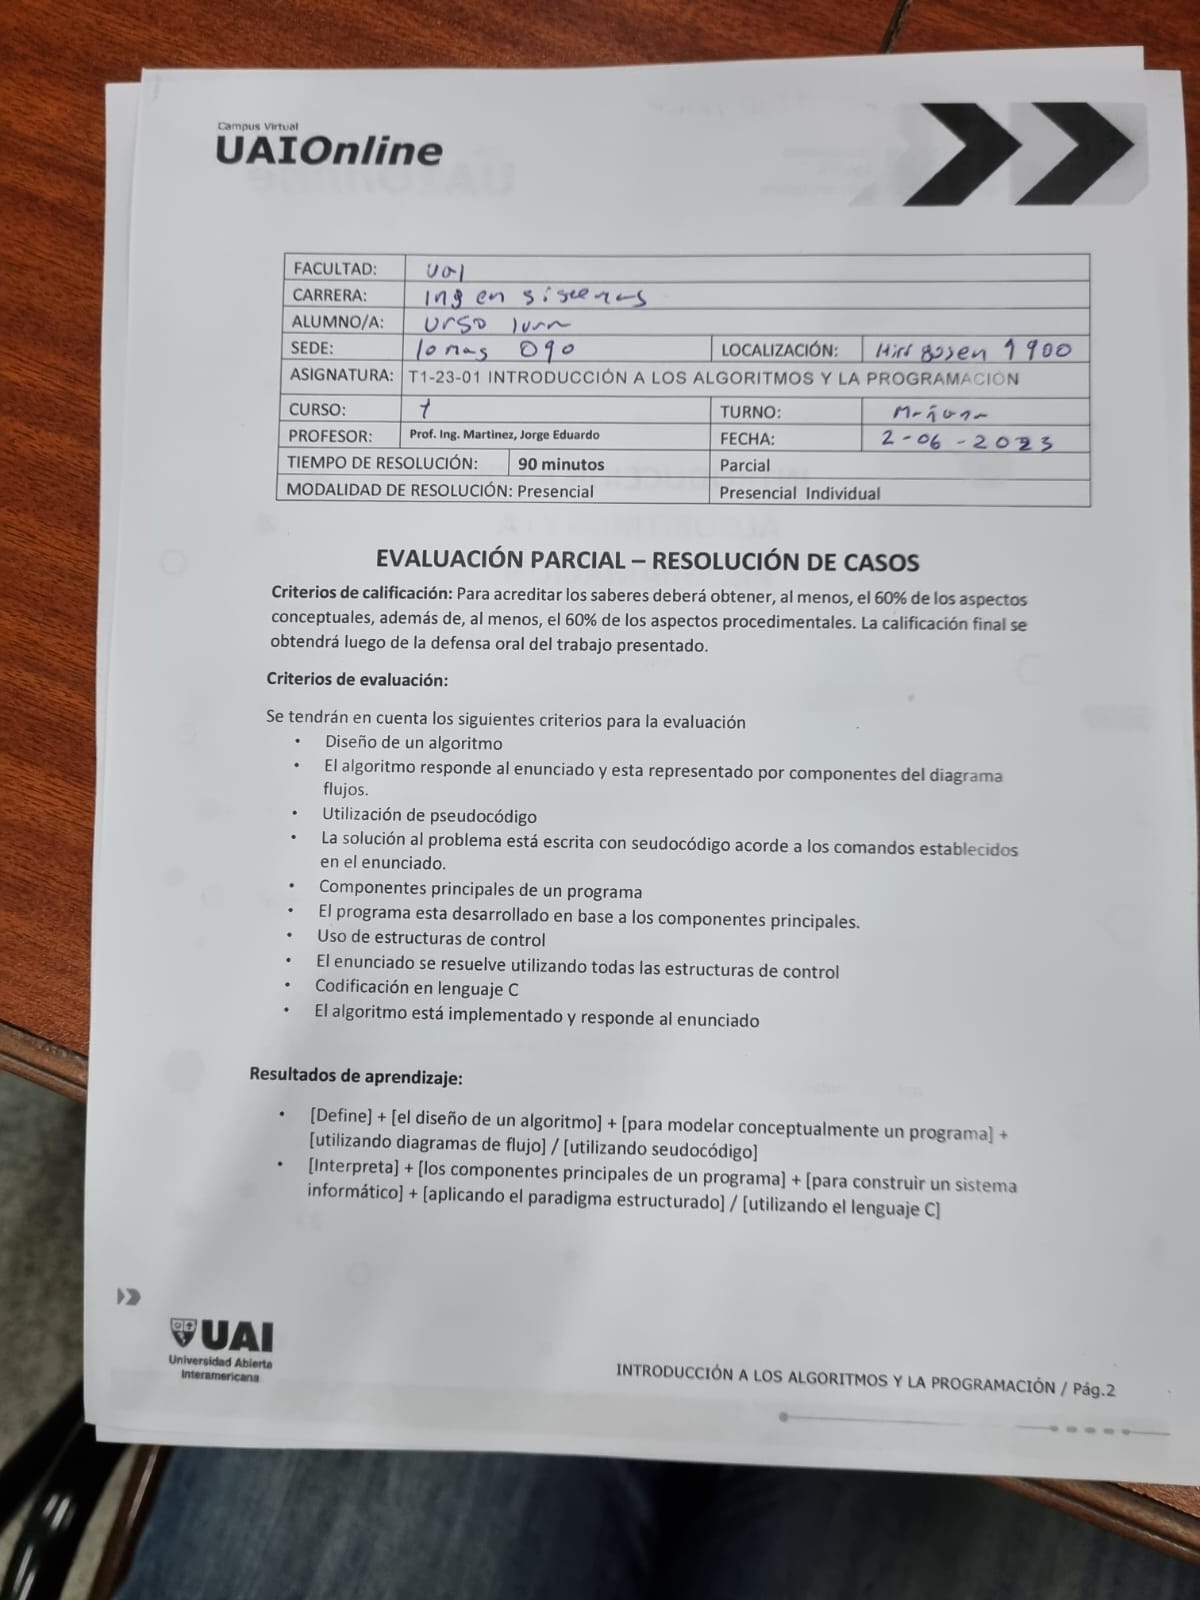 Campus Virtual
UAIOnline
FACULTAD: UAI
CARRERA: Ing en sistemas
ALUMNO/A: Urso Juan
SEDE: lomas 090 LOCALIZACIÓN: 1900
ASIGNATURA: T1-23-01 INTRODUCCIÓN A LOS ALGORITMOS Y LA PROGRAMACIÓN
CURSO: 1 TURNO: Mañana
PROFESOR: Prof. Ing. Martinez, Jorge Eduardo FECHA: 2-06-2023
TIEMPO DE RESOLUCIÓN: 90 minutos Parcial
MODALIDAD DE RESOLUCIÓN: Presencial Presencial Individual
EVALUACIÓN PARCIAL – RESOLUCIÓN DE CASOS
Criterios de calificación: Para acreditar los saberes deberá obtener, al menos, el 60% de los aspectos
conceptuales, además de, al menos, el 60% de los aspectos procedimentales. La calificación final se
obtendrá luego de la defensa oral del trabajo presentado.
Criterios de evaluación:
Se tendrán en cuenta los siguientes criterios para la evaluación
• Diseño de un algoritmo
• El algoritmo responde al enunciado y esta representado por componentes del diagrama
flujos.
• Utilización de pseudocódigo
• La solución al problema está escrita con seudocódigo acorde a los comandos establecidos
en el enunciado.
• Componentes principales de un programa
• El programa esta desarrollado en base a los componentes principales.
• Uso de estructuras de control
• El enunciado se resuelve utilizando todas las estructuras de control
• Codificación en lenguaje C
• El algoritmo está implementado y responde al enunciado
Resultados de aprendizaje:
• [Define] + [el diseño de un algoritmo] + [para modelar conceptualmente un programa] +
[utilizando diagramas de flujo] / [utilizando seudocódigo]
• [Interpreta] + [los componentes principales de un programa] + [para construir un sistema
informático] + [aplicando el paradigma estructurado] / [utilizando el lenguaje C]
UAI
Universidad Abierta
Interamericana
INTRODUCCIÓN A LOS ALGORITMOS Y LA PROGRAMACIÓN / Pág.2